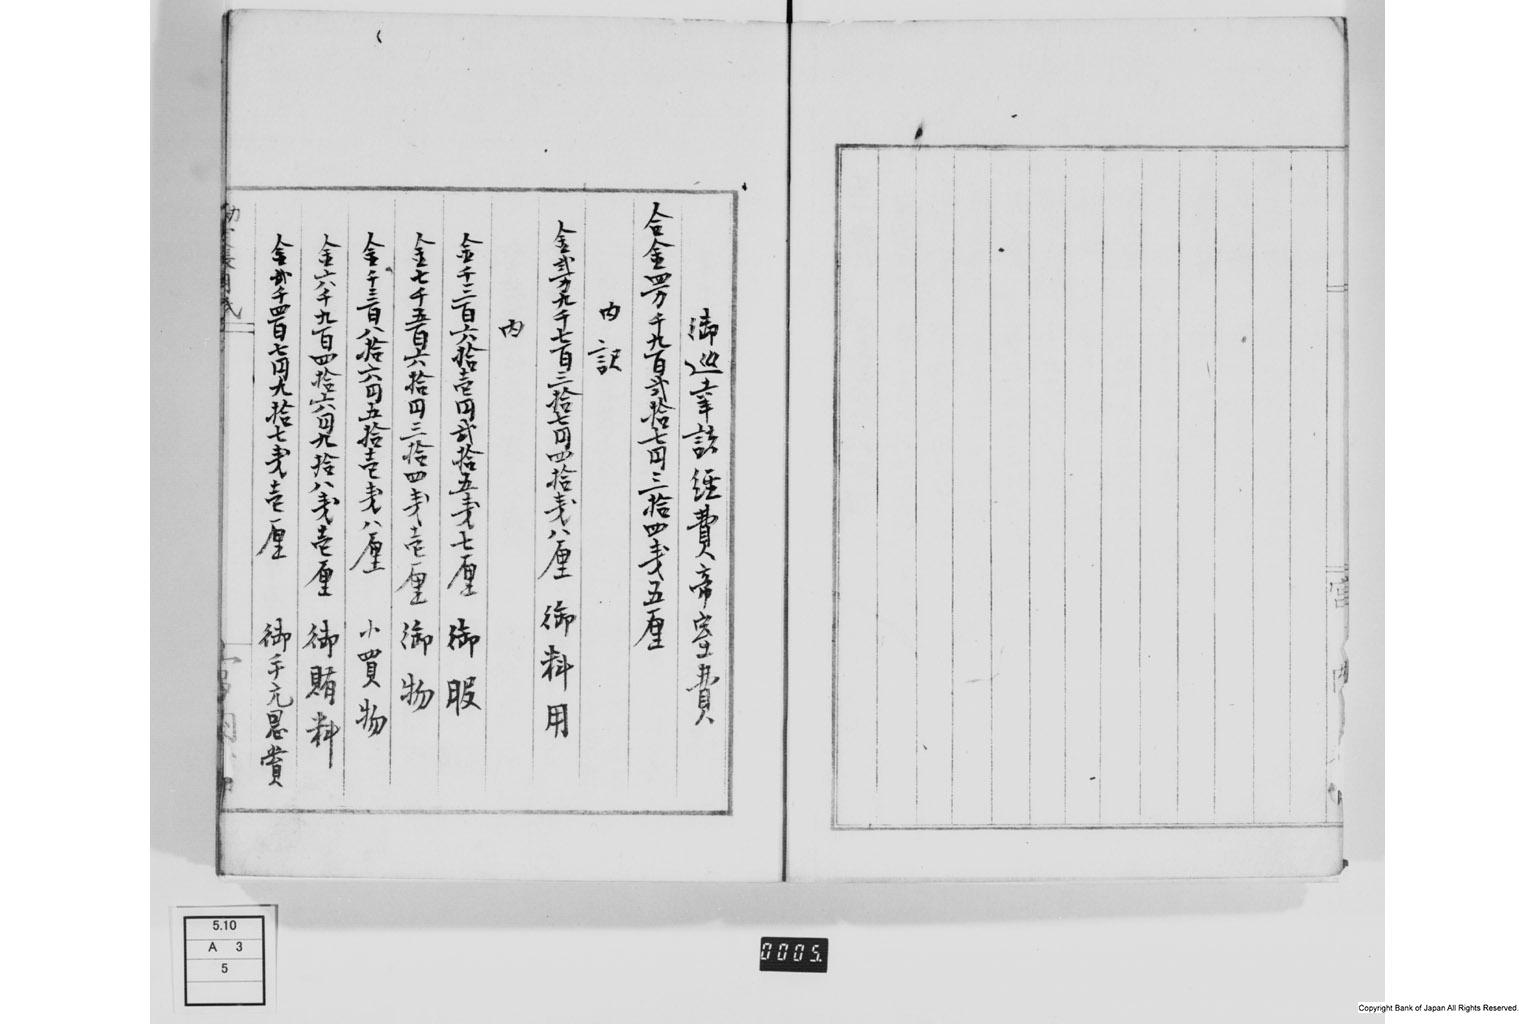 御巡幸諸経費帝室費
合金四万千九百弐拾七円三拾四銭五厘
内訳
金弐万九千七百三拾七円四拾銭八厘 御料用
内
金千三百六拾壱円弐拾五銭七厘 御服
金七千五百六拾四円三拾四銭壱厘 御物
金千三百八拾六円五拾壱銭八厘 小買物
金六千九百四拾六円九拾八銭壱厘 御賄料
金弐千四百七円九拾七銭壱厘 御手元恩賞
宮内
5.10
A 3
5
0005.
Copyright Bank of Japan All Rights Reserved.